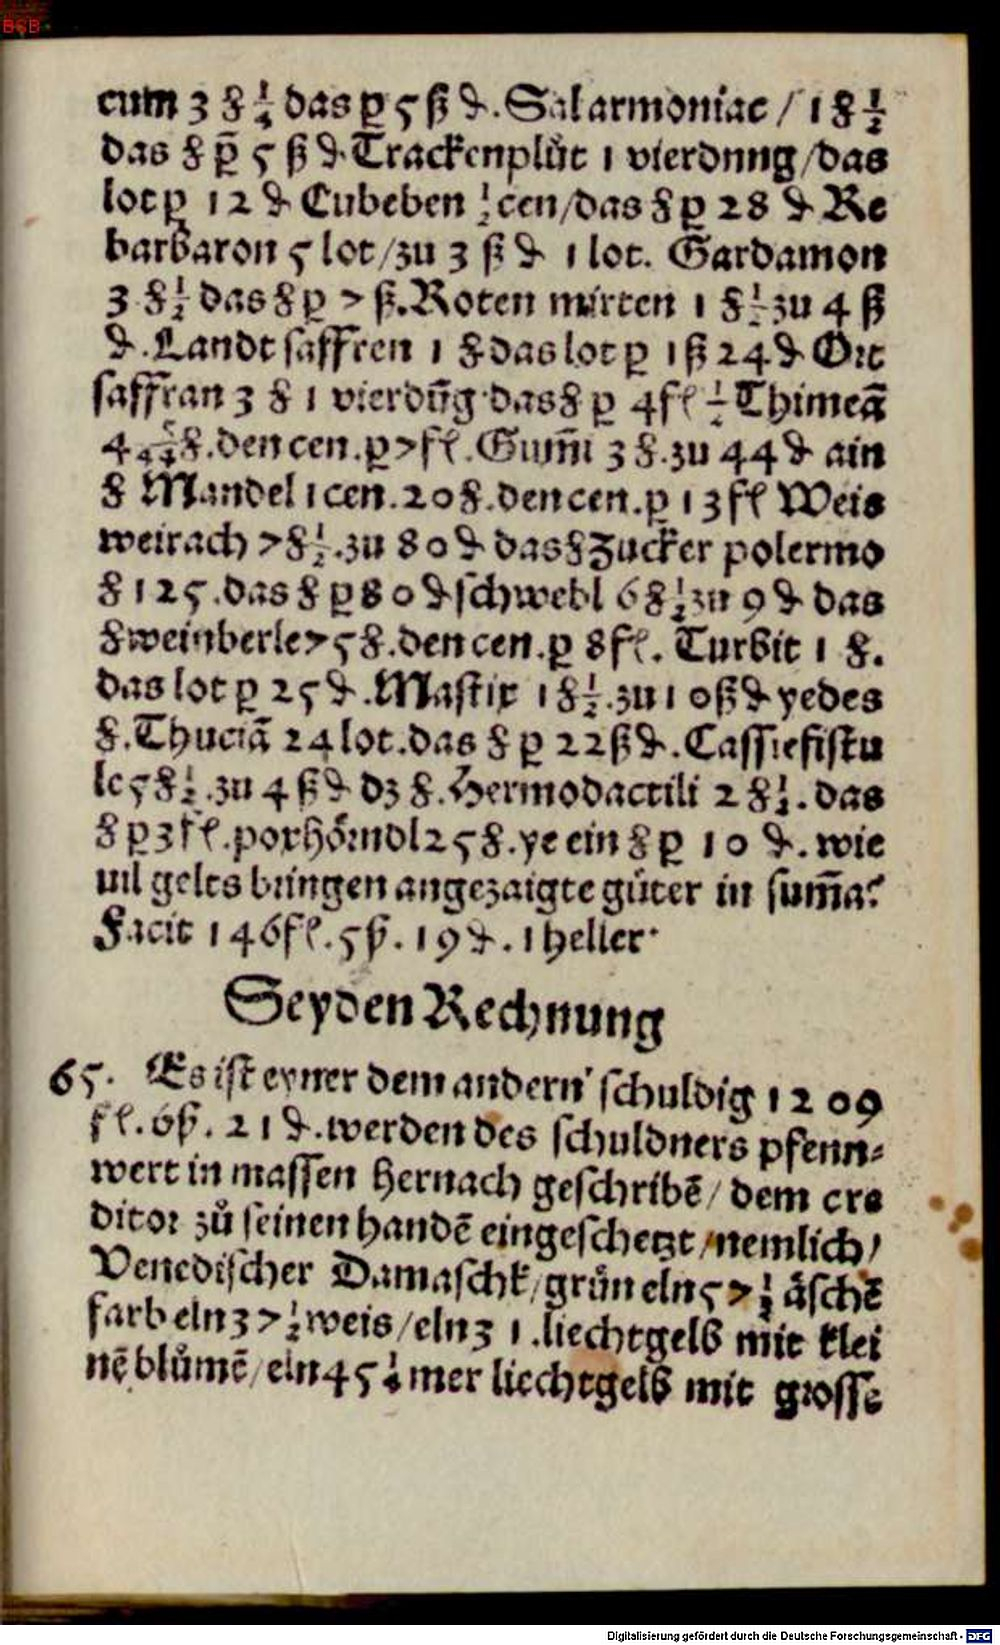 BSB
cum 3 ℔ ¼ das ꝑ 5 ß ₰. Sal armoniac / 1 ℔ ½
das ℔ ꝑ̃ 5 ß ₰. Trackenplůt 1 vierdnng / das
lot ꝑ 12 ₰ Cubeben ½ cen / das ℔ ꝑ 28 ₰ Re
barbaron 5 lot / zu 3 ß ₰ 1 lot. Gardamon
3 ℔ ½ das ℔ ꝑ 7 ß. Roten mirren 1 ℔ ½ zu 4 ß
₰. Landt saffren 1 ℔ das lot ꝑ 1 ß 24 ₰ Ort
saffran 3 ℔ 1 vierdũg das ℔ ꝑ 4 fl ½ Thimeã
℔. den cen. ꝑ 7 fl. Gum̃i 3 ℔. zu 44 ₰ ain
℔ Mandel 1 cen. 20 ℔. den cen. ꝑ 13 fl Weis
weirach 7 ℔ ½. zu 80 ₰ das ℔ Zucker polermo
℔ 125. das ℔ ꝑ 80 ₰ schwebl 6 ℔ ½ zu 9 ₰ das
℔ weinberle 75 ℔. den cen. ꝑ 8 fl. Turbit 1 ℔.
das lot ꝑ 25 ₰. Mastix 1 ℔ ½. zu 10 ß ₰ yedes
℔. Thuciã 24 lot. das ℔ ꝑ 22 ß ₰. Cassiefistu
le 5 ℔ ½. zu 4 ß ₰ dz ℔. Hermodactili 2 ℔ ½. das
℔ ꝑ 3 fl. poxhörndl 25 ℔. ye ein ℔ ꝑ 10 ₰. wie
uil gelts bringen angezaigte güter in sum̃a?
Facit 146 fl. 5 ß. 19 ₰. 1 heller
Seyden Rechnung
65. Es ist eyner dem andern schuldig 1209
fl. 6 ß. 21 ₰. werden des schuldners pfenn⸗
wert in massen hernach geschribẽ / dem cre
ditor zů seinen handẽ eingeschetzt / nemlich /
Venedischer Damaschk / grün eln 57 ½ äschẽ
farb eln 37 ½ weis / eln 31. liechtgelb mit klei
nẽ blůmẽ / eln 45 ¼ mer liechtgelb mit grosse
Digitalisierung gefördert durch die Deutsche Forschungsgemeinschaft - DFG